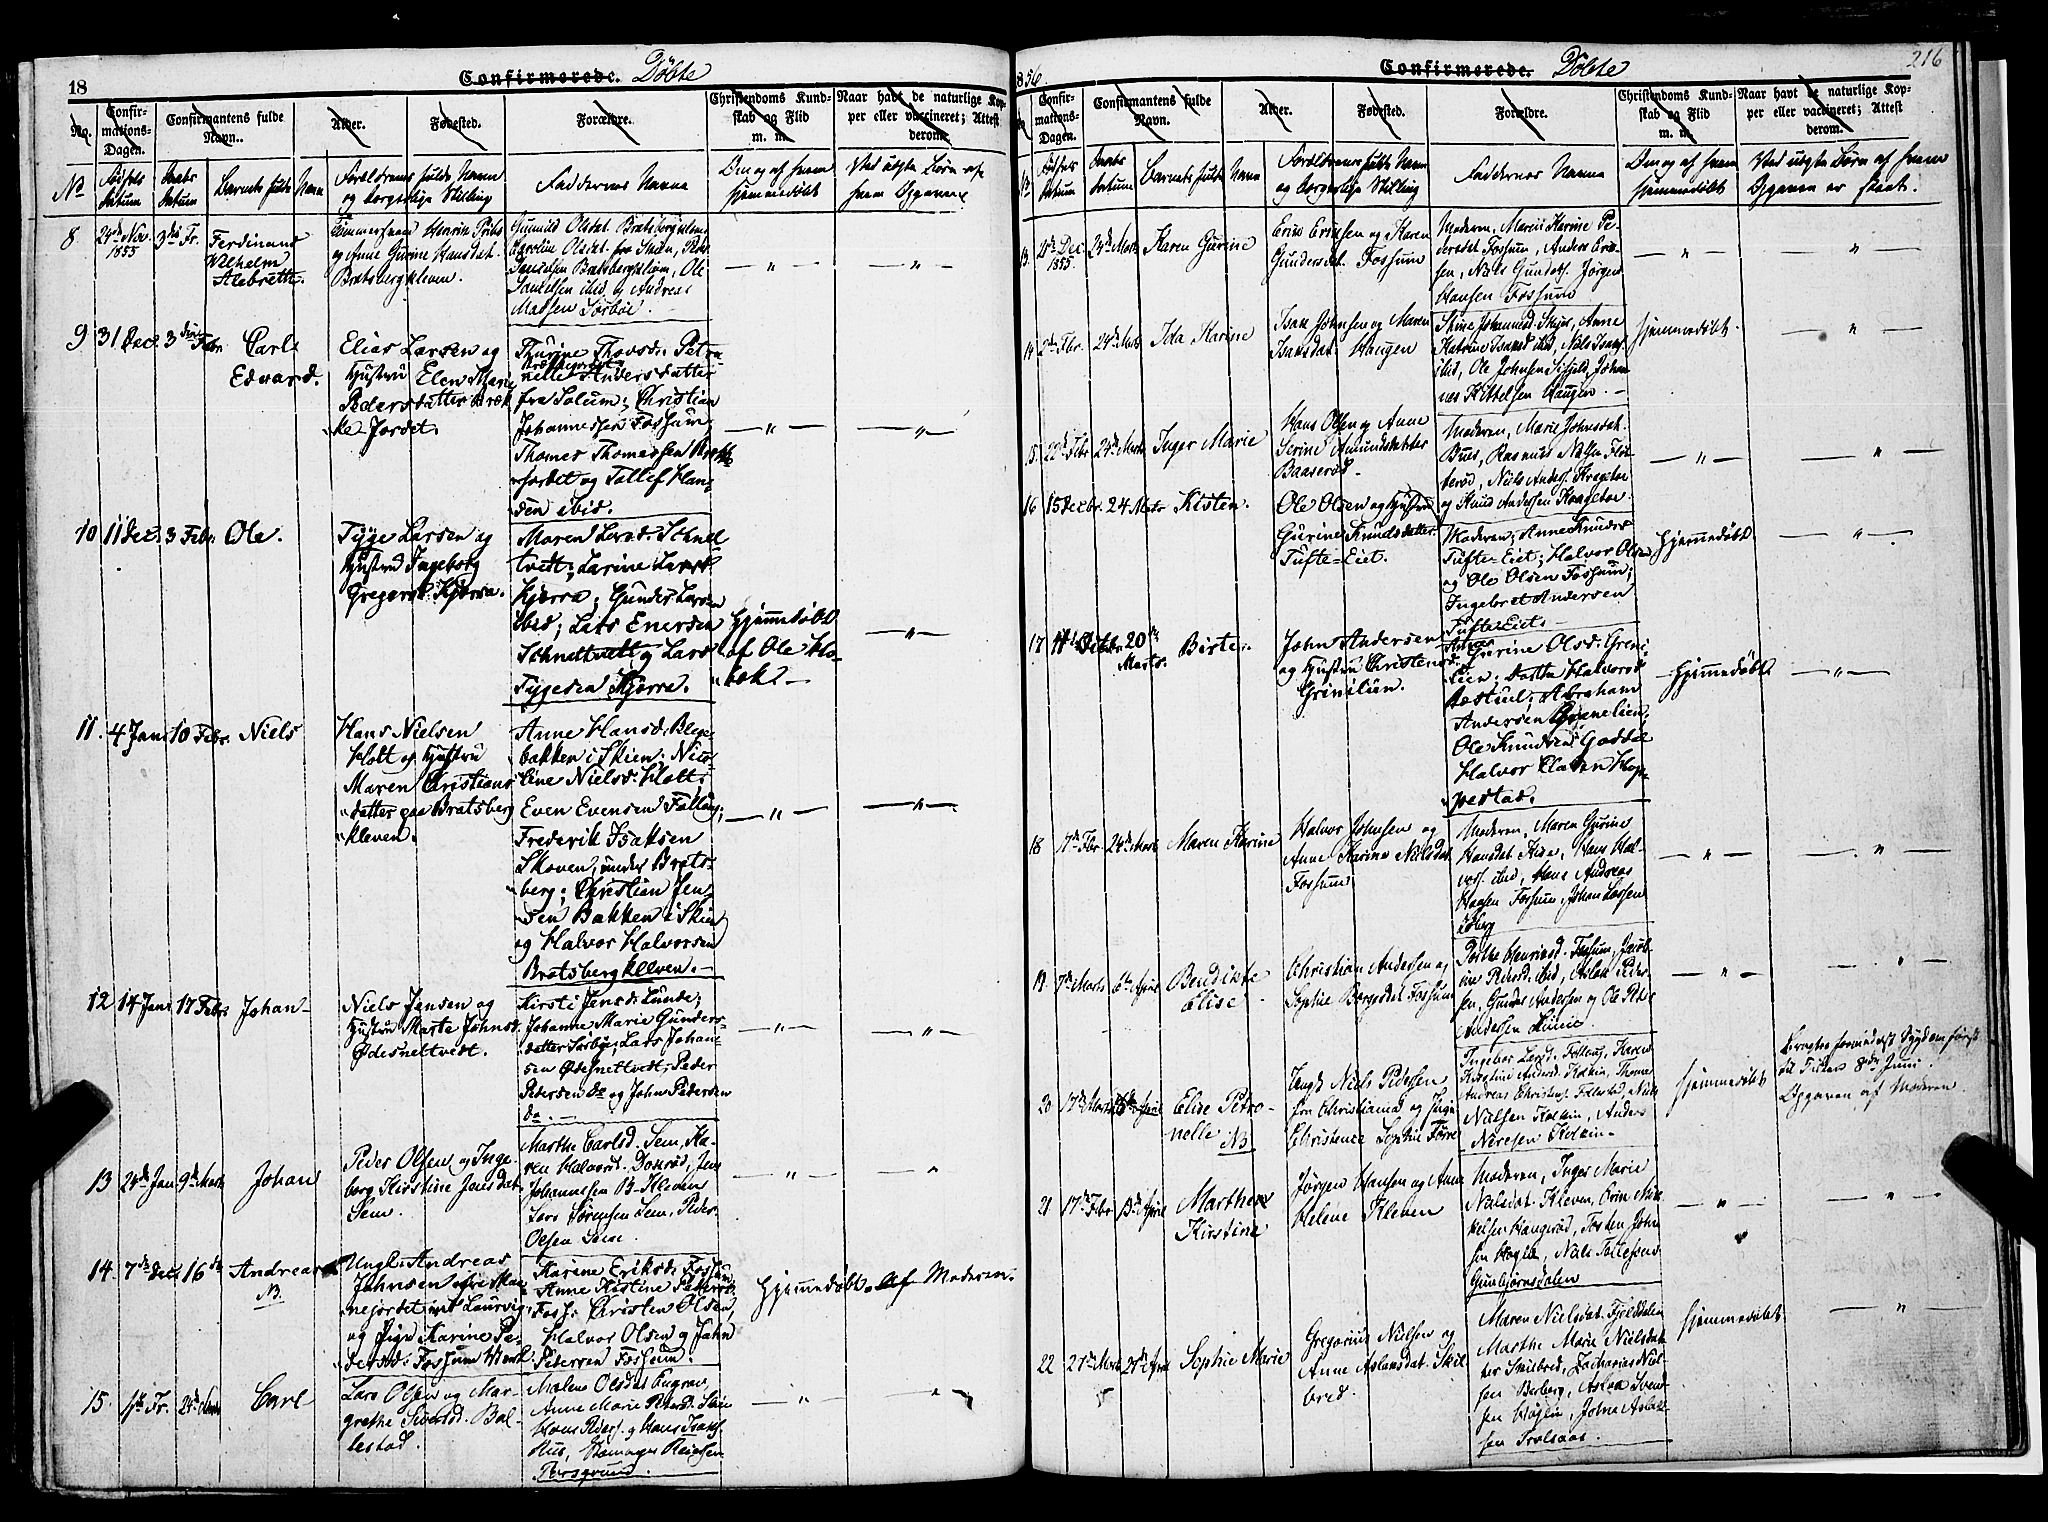 18
Confirmerede. Döbte
No.
Confir-
mations-
Dagen.
Confirmantens fulde
Navn.
Alder.
Fødested.
Forældre.
Christendoms Kund-
skab og Flid
m. m.
Naar havt de naturlige Kop-
per eller vaccineret; Attest
derom.
No
Födsels
datum
Daabs
datum
Barnets fulde Navn
Forældrenes fulde Navne
og borgerlige Stilling
Faddernes Navne
Om og af hvem
hjemmedöbt
8
24de Nov.
1855
3die Fr.
Ferdinand
Vilhelm
Albreth.
og Anne Gurine Hansdat.
Bratsbergkleven.
Gunild Olsdat. Bratsbergkleven
Karoline Olsdat. fra Skien,
Danielsen Bratsbergkleven, Ole
Danielsen ibid og Andreas
Madsen Sörböe.
— " —
— " —
9
31 Dec.
3die Febr.
Carl
Edvard.
Elias Larsen og
Hustru Elen Marie
Pedersdatter Bræk-
ke-Jordet.
Thurine Thovsd. Petro-
nelle Andersdatter
fra Solum; Christian
Johannessen Fossum,
Thomes Thomessen Brekke
jordet og Tollef Han-
sen ibid.
— " —
— " —
10
11 Dec.
3 Febr.
Ole.
Tyge Larsen og
Hustru Ingeborg
Gregersd. Kjørra.
Maren Larsd. Schnel-
tvedt; Larine Larsd.
Kjørra; Gunder Larsen
ibid; Lars Enersen
Schneltvett og Lars
Tygesen Kjørra.
Hjemmedöbt
af Ole Ho-
bæk?
— " —
11.
4 Jan.
10 Febr.
Niels
Hans Nielsen
Holt og Hustru
Maren Christians-
datter paa Bratsberg
kleven.
Anne Hansd. Blege-
bakken i Skien; Nico-
line Nielsd. Holt;
Even Evensen Follaug;
Frederik Isaksen
Skoven, under Brats-
berg; Christian Jen-
sen Bakken i Skien
og Halvor Halvorsen
Bratsbergkleven.
— " —
— " —
12
14 Jan.
17 Febr.
Johan
Niels Jensen og
Hustru Marte Johnsd.
Ødesneltvedt.
Kirsti Jensd. Lunde;
Johanne Marie Gunders-
datter Sörböe; Lars Johan-
sen Ødesneltvedt; Peder
Pedersen do og John Pedersen
do.
— " —
— " —
13
24de Jan
9de Marts
Johan
Peder Olsen og Inge-
borg Kirstine Jensdat.
Sem.
Marthe Carlsd. Sem, Ka-
ren Halvorsd. Doxrød, Jens
Johannesen B-Kleven
Lars Sörensen Sem, Peder
Olsen Sem.
— " —
— " —
14.
7de Dec.
16de
Andreas
NB.
Ungk. Andreas
Johnsen
nejordet ved Laurvig
og Pige Karine Pe-
dersd. Fossum Verk.
Karine Eriksd. Fossum
Anne Kirstine Pedersd.
Foss. Christen Olsen,
Halvor Olsen og John
Petersen Fossum.
Hjemmedöbt af Moderen.
15.
1ste Fr.
24de Marts
Carl
Lars Olsen og Mar-
grethe Siversd. Bal-
lestad.
Malene Olsdat.
Anne Marie Pedersd. Skien
Hans Peders. og Hans Isachs.
Hus, Hamagen
Porsgrund.
— " —
— " —
1856.
Confirmerede. Döbte
216
Confir-
mations-
Dagen.
Confirmantens fulde
Navn.
Alder.
Fødested.
Forældre.
Christendoms Kund-
skab og Flid
m. m.
Naar havt de naturlige Kop-
per eller vaccineret; Attest
derom.
Födsels
datum
Daabs
datum
Barnets fulde Navn
Forældrenes fulde Navne
og borgerlige Stilling
Faddernes Navne
Om og af hvem
hjemmedöbt
Ved uægte Börn af hvem
Opgaven er skeet.
13.
Dec
1855.
24de Marts
Karen Gurine
Eries Eriksen og Karen
Gundersdat. Fossum
Moderen, Maria Karine Pe-
dersdat. Fossum, Anders Erik-
sen, Niels Gunders. Jörgen
Hansen Fossum
— " —
— " —
14
2den Fbr.
24de Marts
Ida Karine
Isak Johnsen og Maren
Isaksdat. Haugen
Stine Johannesd. Skyer, Anne
Katrine Isaksd. ibid, Niels Isaks.
ibid, Ole Johnsen, Johan-
nes Kittelsen Haugen.
hjemmedöbt.
— " —
15
22de Febr
24de Marts
Inger Marie
Hans Olsen og Anne
Serine Amundsdatter
Baaserød.
Moderen, Marie Johnsdat.
Bues, Rasmus Nielsen
Niels Anders. Kragetor
og Knud Andersen Kragetor.
— " —
— " —
16
15 Decbr.
24 Marts
Kisten.
Ole Olsen og Hustru
Gurine Knudsdatter
Tufte-Eiet.
Moderen; Anne Knudsd.
Tufte-Eiet; Halvor Olsen
og Ole Olsen Fossum;
Ingebret Andersen
Tufte-Eiet.
Hjemmedöbt
— " —
17
20de
Marts
Birte.
John Andersen
og Hustru Christensd.
Grinilien.
Gurine Olsd. Greni-
lien; Dorthe Halvorsd.
Abraham
Andersen Grenelien;
Ole Knudsen Goddal
Halvor Clasen Hop-
pestad.
Hjemmedöbt
— " —
18
7de Fbr.
24de Marts
Maren Karine
Halvor Johnsen og
Anne Karine Nielsdat.
Fossum
Moderen, Maren Gurine
Hansdat. Kise, Hans Hal-
vors. ibid, Hans Andreas
Hansen Fossum, Johan Larsen
— " —
— " —
19.
7de Marts
6te April
Bendikte
Elise
Christian Andersen og
Sophie Borgesdat. Fossum
Dorthe Henriksd. Fossum, Jacob-
ine Pedersd. ibid, Aslak Peder-
sen, Gunder Andersen og Ole Peter
Andersen
— " —
— " —
20
17de Marts
April
Elise Petro-
nelle NB
Ungk. Niels Pedersen
fra Christiania og Pige
Christence Sophie Förre
Ingebor Larsd. Follaug, Karen
Kirstine Andersd. Kolkin, Thomas
Andreas Christens. Fallestad, Niels
Nielsen Kolkin, Anders
Niresen Kolkin
hjemmedöbt
til Fadder 8de Juni.
Opgaven af Moderen.
21
17de Fbr
13de April
Marthea
Kirstine
Jörgen Hansen og Anne
Helene Kleven
Moderen, Inger Marie
Nielsdat. Kleven, Nik-
kelsen Haugerød, Torsten John-
sen Höglie, Niels Tollefsen
Gunbjørnsdalen
— " —
— " —
22
27de Marts
27de April
Sophie Marie
Gregorius Nielsen og
Anne Aslaksdat. Skil-
bred.
Maren Nielsdat. Fjelldalen
Marthe Marie Nielsdat-
ter Skilbred, Zacharias Niel-
sen Berberg, Aslak Svend-
sen Höglie, Johne Aslak-
sen Trolsaas.
hjemmedöbt
— " —